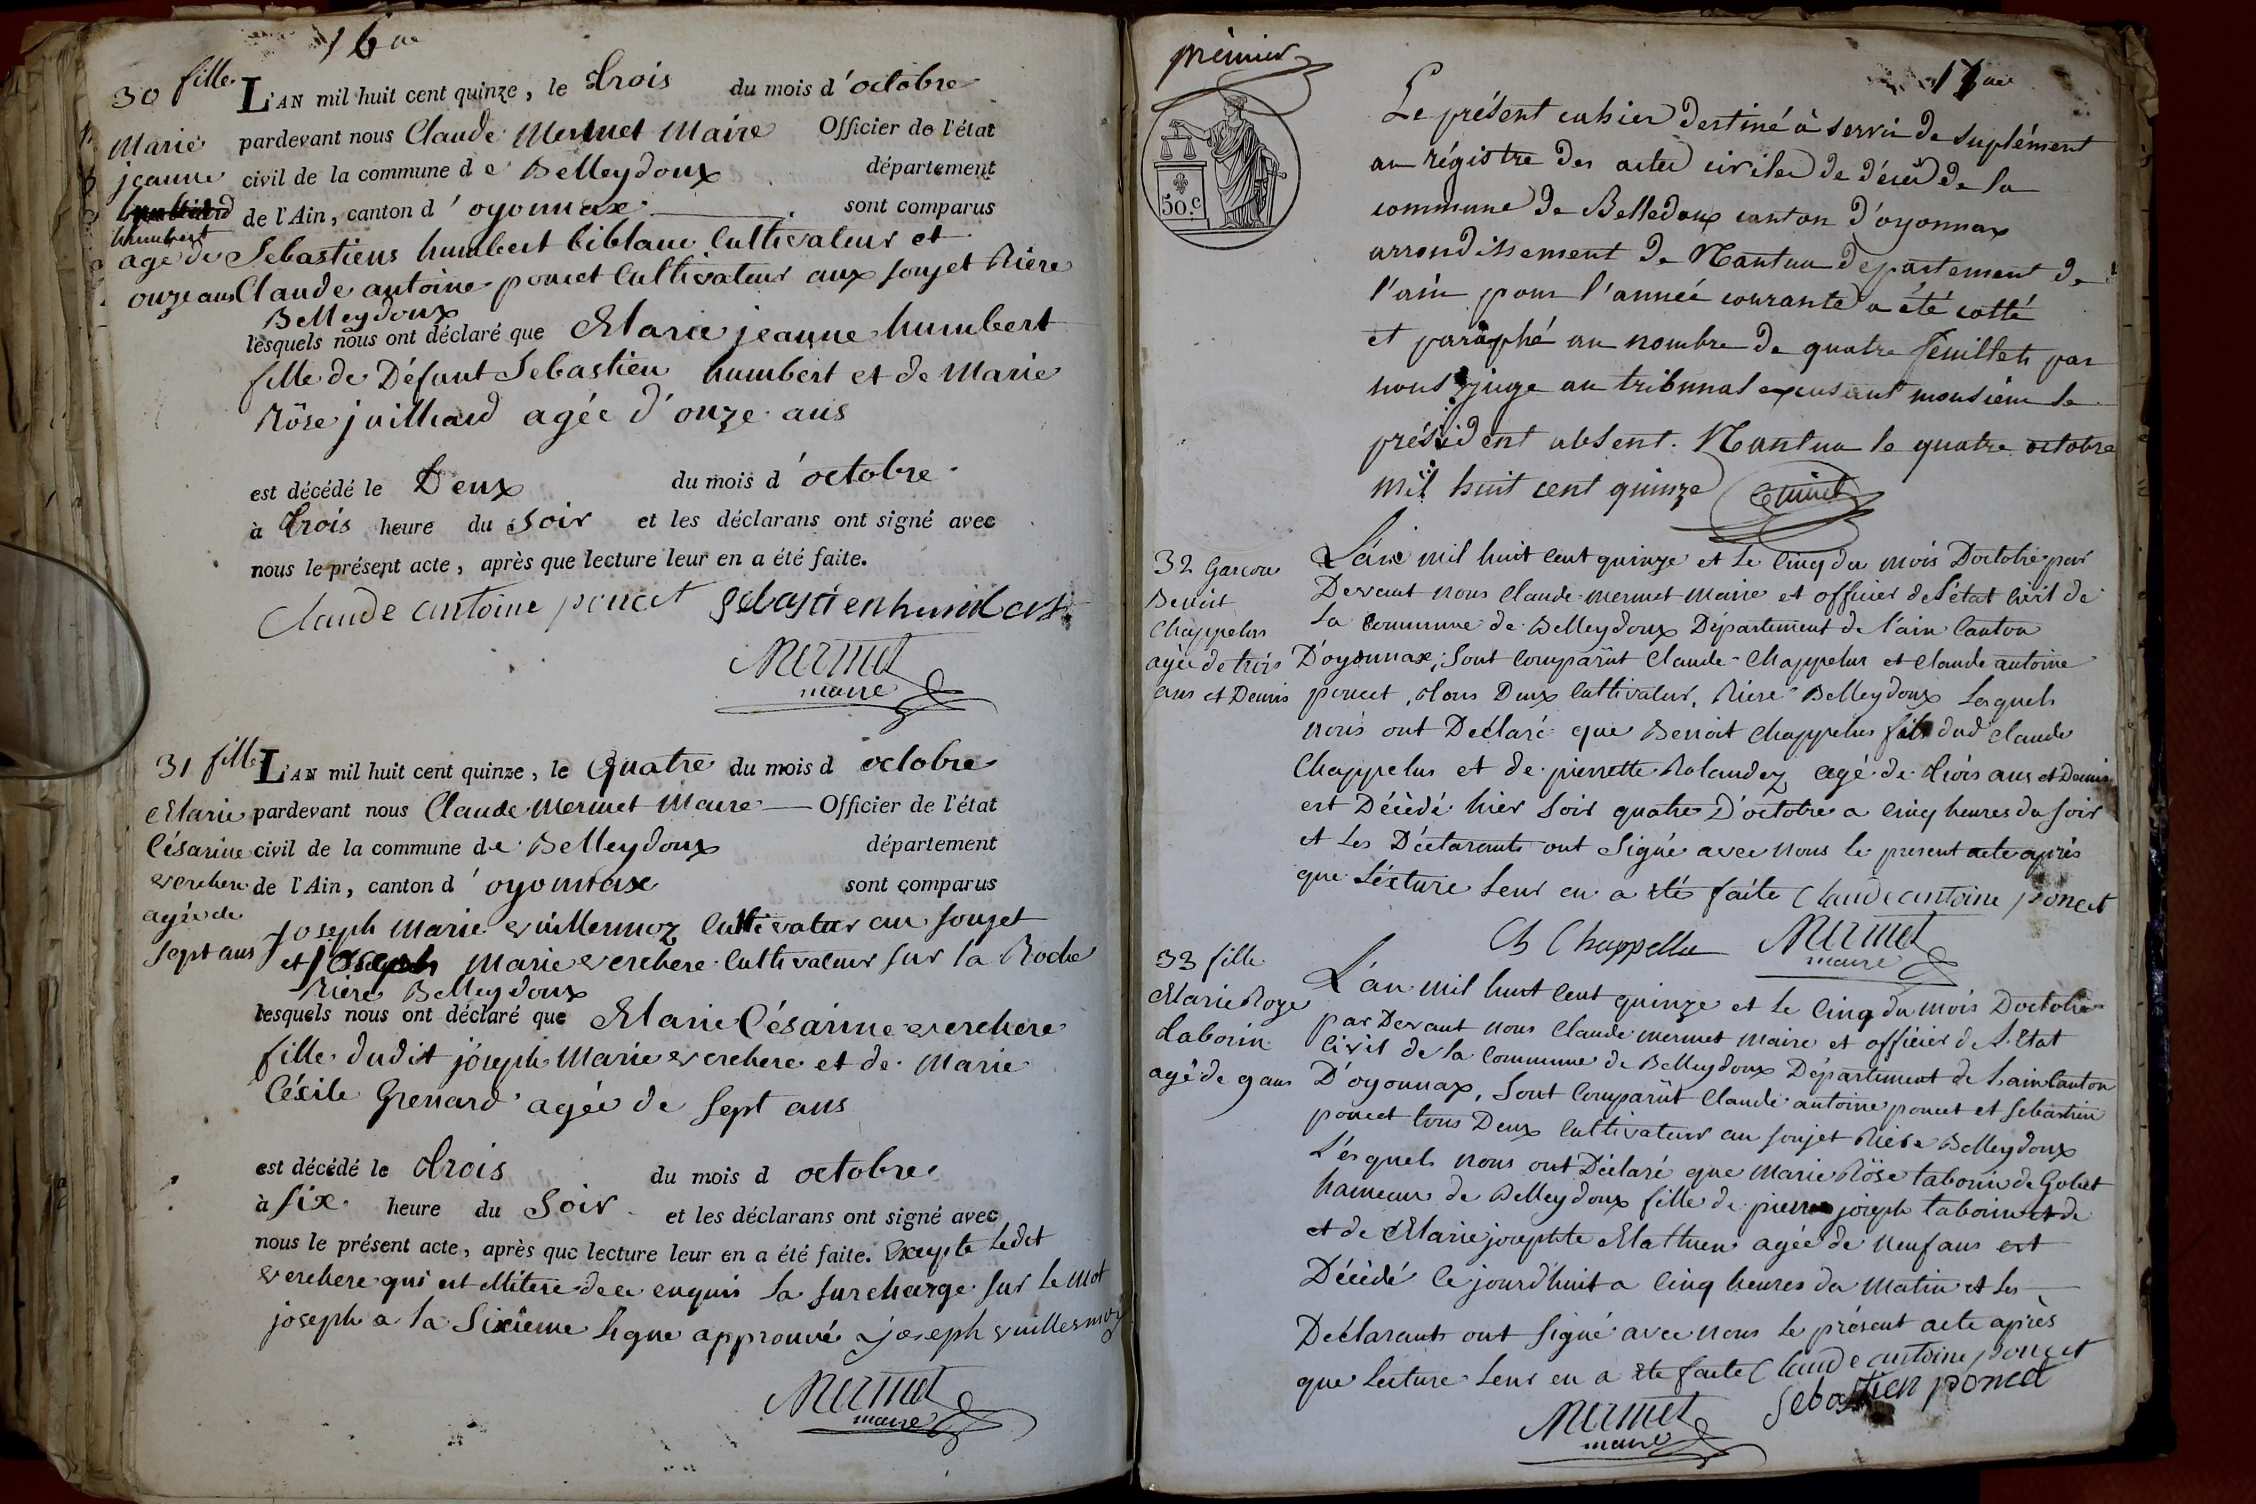 16me
30 fille
Marie
jeanne
humbert
agé de
onze ans
L'AN mil huit cent quinze, le trois du mois d'octobre
pardevant nous Claude Mermet Maire Officier de l'état
civil de la commune d e Belleydoux département
de l'Ain, canton d'oyonnax sont comparus
Sebastiens humbert biblanc Cultivateur et
Claude antoine poncet Cultivateur aux soujet Rière
Belleydoux
lesquels nous ont déclaré que Marie jeanne humbert
fille de Défunt Sebastien humbert et de Marie
Rôse juilliard agée d'onze ans
est décédé le Deux du mois d'octobre
à trois heure du Soir et les déclarans ont signé avec
nous le présent acte, après que lecture leur en a été faite.
Claude antoine poncet Sebastien humbert
Mermet
maire
31 fille
Marie
Césarine
verchere
agée de
sept ans
L'AN mil huit cent quinze, le quatre du mois d octobre
pardevant nous Claude Mermet Maire Officier de l'état
civil de la commune de Belleydoux département
de l'Ain, canton d'oyonnax sont comparus
Joseph Marie vuillermoz Cultivateur au soujet
et joseph Marie verchere Cultivateur sur la Roche
Rière Belleydoux
lesquels nous ont déclaré que Marie Césarine verchere
fille dudit joseph Marie verchere et de Marie
Césile Grenard agée de sept ans
est décédé le trois du mois d octobre
à six heure du Soir et les déclarans ont signé avec
nous le présent acte, après que lecture leur en a été faite. Excepte ledet
verchere qui est illitere de ce enquis la surcharge sur le mot
joseph a la Sixieme ligne approuvé joseph vuillermoz
Mermet
maire
prémier
50.c
17me
Le présent cahier destiné à servir de suplément
au régistre des actes civiles de décès de la
commune de Belledoux canton d'oyonnax
arrondissement de Nantua département de
l'ain pour l'année courante a été cotté
et paraphé au nombre de quatre feuillets par
nous juge au tribunal excusant monsieur le
président absent. Nantua le quatre octobre
mil huit cent quinze
32 Garcon
Benoit
Chappelus
agée de trois
ans et Demis
L'an mil huit cent quinze et le Cinq du mois Doctobre par
Devant nous Claude mermet maire et officier de l'état Civil de
la Commune de Belleydoux Département de l'ain Canton
D'oyonnax, Sont Comparüt Claude Chappelus et Claude antoine
poncet, tous Deux Cultivateur, Riere Belleydoux Lesquels
nous ont Déclaré que Benoit Chappelus fils dud Claude
Chappelus et de pierrette Rolandez agé de trois ans et Demis
est Décédé hier Soir quatre D'octobre a Cinq heures du soir
et Les Déclarants ont Signé avec nous le present acte après
que Lécture Leur en a été faite Claude antoine poncet
Ch Chappellu Mermet
maire
33 fille
Marie Roze
taborin
agé de 9 ans
L'an mil huit Cent quinze et le Cinq du mois Doctobre
par Devant nous Claude mermet maire et officier de l'Etat
Civil de la Commune de Belleydoux Département de Lain Canton
D'oyonnax, Sont Comparüt Claude antoine poncet et Sebastien
poncet tous Deux Cultivateur au soujet Rière Belleydoux
Lésquels nous ont Déclaré que Marie Rôse taborin de Gobet
hameau de Belleydoux fille de pierre joseph taborin et de
et de Marie josephte Mathieu agée de neuf ans est
Décédé Ce jourd'huit a Cinq heures du Matin et Les
Déclarants ont Signé avec nous Le présent acte après
que Lecture Leur en a été faite Claude antoine poncet
Sebastien poncet
Mermet
maire